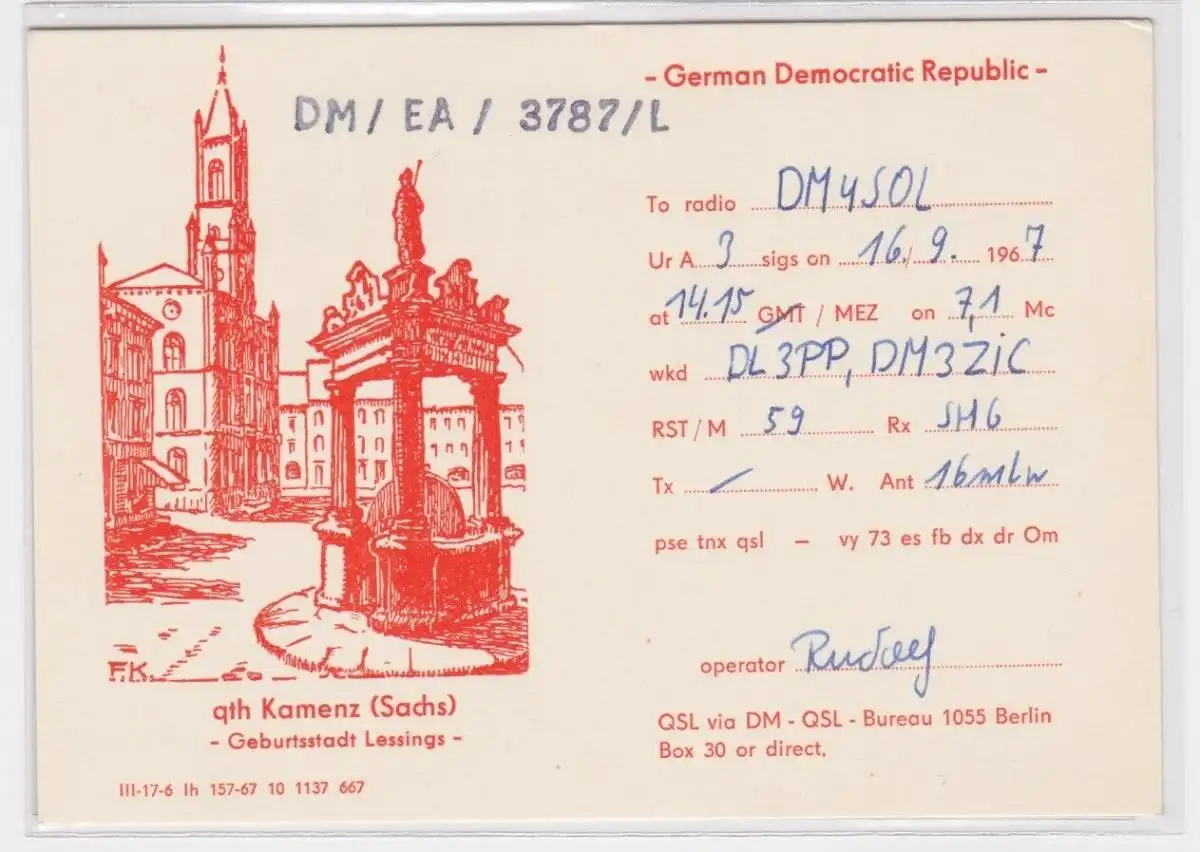 - German Democratic Republic -
DM / EA / 3787/L
To radio DM4SOL
Ur A 3 sigs on 16./9. 1967
at 14.15 GMT / MEZ on 7,1 Mc
wkd DL3PP, DM3ZiC
RST/M 59 Rx SH6
Tx / W. Ant 16mLw
pse tnx qsl – vy 73 es fb dx dr Om
operator Rudolf
QSL via DM - QSL - Bureau 1055 Berlin
Box 30 or direct,
F.K.
qth Kamenz (Sachs)
- Geburtsstadt Lessings -
III-17-6 Ih 157-67 10 1137 667